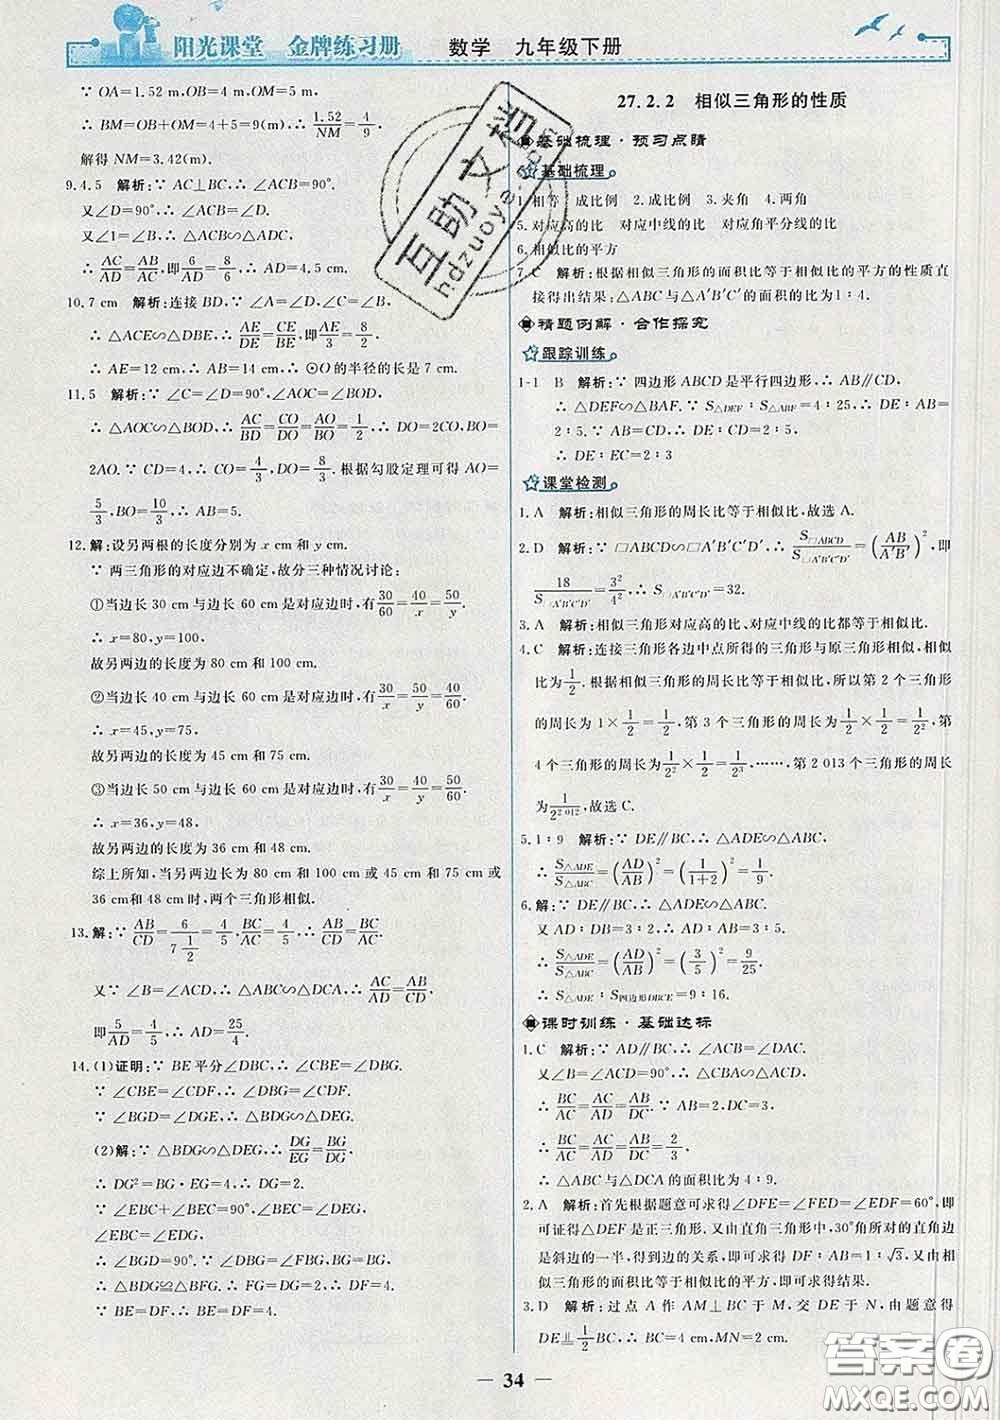 阳光课堂 金牌练习册 数学 九年级下册
∵ OA=1.52 m,OB=4 m,
∴ BM=OB+OM=4+5=9(m),∴ 1.52/NM=4/9.
解得 NM=3.42(m).
9.4.5 解析:∵ AC⊥BC,∴ ∠ACB=90°.
又∠D=90°,∴ ∠ACB=∠D.
又∠1=∠B,∴ △ACB∽△ADC,
∴ AC/AD=AB/AC,即6/AD=8/6,∴ AD=4.5 cm.
10.7 cm 解析:连接 BD,∵ ∠A=∠D,∠C=∠B,
∴ △ACE∽△DBE,∴ AE/DE=CE/BE,即AE/3=8/2,
∴ AE=12 cm,∴ AB=14 cm,∴ ⊙O 的半径的长是 7 cm.
11.5 解析:∵ ∠C=∠D=90°,∠AOC=∠BOD,
∴ △AOC∽△BOD,∴ AC/BD=CO/DO=AO/BO=1/2,∴ DO=2CO,BO=
2AO.∵ CD=4,∴ CO=4/3,DO=8/3.根据勾股定理可得 AO=
5/3,BO=10/3,∴ AB=5.
12.解:设另两根的长度分别为 x cm 和 y cm.
∵ 两三角形的对应边不确定,故分三种情况讨论:
①当边长 30 cm 与边长 60 cm 是对应边时,有30/60=40/x=50/y,
∴ x=80,y=100,
故另两边的长度为 80 cm 和 100 cm.
②当边长 40 cm 与边长 60 cm 是对应边时,有30/x=50/y=40/60,
∴ x=45,y=75,
故另两边的长度为 45 cm 和 75 cm.
③当边长 50 cm 与边长 60 cm 是对应边时,有30/x=40/y=50/60,
∴ x=36,y=48,
故另两边的长度为 36 cm 和 48 cm.
综上所知,当另两边的长度为 80 cm 和 100 cm 或 45 cm 和 75 cm 或
36 cm和 48 cm 时,两个三角形相似.
13.解:∵ AB/CD=6/(7 1/2)=4/5,BC/AC=4/5,∴ AB/CD=BC/AC.
又∵ ∠B=∠ACD,∴ △ABC∽△DCA,∴ AC/AD=AB/CD,
即5/AD=4/5,∴ AD=25/4.
14.(1)证明:∵ BE 平分∠DBC,∴ ∠CBE=∠DBE.
∵ ∠CBE=∠CDF,∴ ∠DBG=∠CDF.
∵ ∠BGD=∠DGE,∴ △BDG∽△DEG.
(2)解:∵ △BDG∽△DEG,∴ DG/EG=BG/DG,
∴ DG²=BG·EG=4,∴ DG=2.
∵ ∠EBC+∠BEC=90°,∠BEC=∠DEG,∠EBC=
∠EDG,
∴ ∠BGD=90°.∵ ∠DBG=∠FBG,BG=BG,
∴ △BDG≌△BFG.∴ FG=DG=2,∴ DF=4.
∵ BE=DF,∴ BE=DF=4.
27.2.2 相似三角形的性质
基础梳理·预习点睛
基础梳理
1.相等 成比例 2.成比例 3.夹角 4.两角
5.对应高的比 对应中线的比 对应角平分线的比
6.相似比的平方
7.C 解析:根据相似三角形的面积比等于相似比的平方的性质直
接得出结果;△ABC与△A′B′C′的面积的比为1∶4.
精题例解·合作探究
跟踪训练
1-1 B 解析:∵ 四边形 ABCD 是平行四边形,∴ AB∥CD,
∴ △DEF∽△BAF.∵ S△DEF∶S△ABF=4∶25,∴ DE∶AB=
2∶5.∵ AB=CD,
∴ DE∶EC=2∶3
课堂检测
1.A 解析:相似三角形的周长比等于相似比,故选 A.
2.D 解析:∵ □ABCD∽□A′B′C′D′,∴ S□ABCD/S□A′B′C′D′=(AB/A′B′)²,即
18/S□A′B′C′D′=3²/4²,∴ S□A′B′C′D′=32.
3.A 解析:相似三角形对应高的比、对应中线的比都等于相似比.
4.C 解析:连接三角形各边中点所得的三角形与原三角形相似,相似
比为1/2.根据相似三角形的周长比等于相似比,所以第 2 个三角形
的周长为 1×1/2=1/2,第 3 个三角形的周长为1/2×1/2=1/2²,第
4 个三角形的周长为1/2²×1/2=1/2³,……,第 2 013 个三角形的周长
为1/2^2 012,故选 C.
5.1∶9 解析:∵ DE∥BC,∴ △ADE∽△ABC,
∴ S△ADE/S△ABC=(AD/AB)²=(1/(1+2))²=1/9.
6.解:∵ DE∥BC,∴ △ADE∽△ABC.
又 AD∶DB=3∶2,∴ AD∶AB=3∶5.
∴ S△ADE/S△ABC=(AD/AB)²=(3/5)²=9/25.
∴ S△ADE∶S四边形DBCE=9∶16.
课时训练·基础达标
1.C 解析:∵ AD∥BC,∴ ∠ACB=∠DAC.
又∠B=∠ACD=90°,∴ △CBA∽△ACD,
∴ BC/AC=AC/AD=AB/DC.∵ AB=2,DC=3,
∴ BC/AC=AC/AD=AB/DC=2/3,
∴ △ABC 与△DCA 的面积比为 4∶9.
2.A 解析:首先根据题意可求得∠DFE=∠FED=∠EDF=60°,即
可证得△DEF 是正三角形.又由直角三角形中,30°角所对的直角边
是斜边的一半,得到边的关系,即可求得 DF∶AB=1∶√3,又由相
似三角形的面积比等于相似比的平方,即可求得结果.
3.D 解析:过点 A 作 AM⊥BC 于 M,交 DE 于 N,由题意得
DE∥1/2BC,∴ BC=4 cm,MN=2 cm.
34
互助文档
hdzuoye.com
答案圈
MXQE.COM